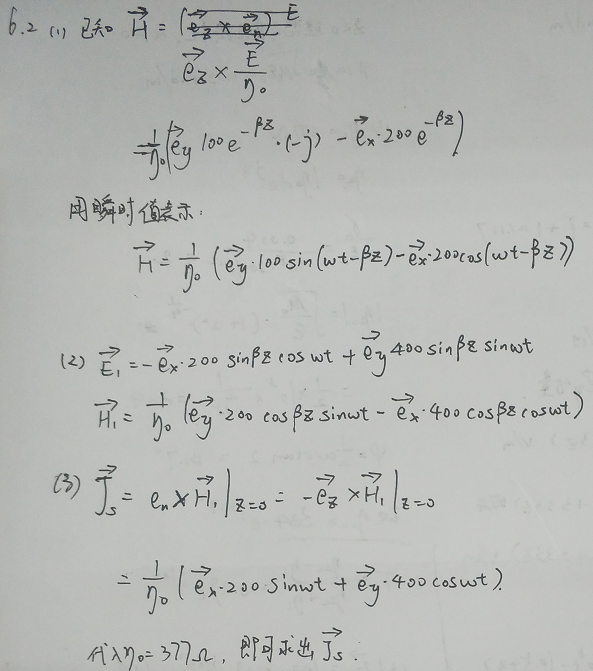 6.2 (1) 已知 H⃗ = (e⃗z × e⃗n) E
e⃗z × E⃗/η₀
= 1/η₀ (e⃗y 100e^(-βz)·(-j) - e⃗x·200e^(-βz))
用瞬时值表示:
H⃗ = 1/η₀ (e⃗y·100 sin(wt-βz) - e⃗x·200cos(wt-βz))
(2) E⃗₁ = -e⃗x·200 sinβz cos wt + e⃗y 400 sinβz sinwt
H⃗₁ = 1/η₀ (e⃗y·200 cosβz sinwt - e⃗x·400 cosβz coswt)
(3) J⃗s = en × H⃗₁|z=0 = -e⃗z × H⃗₁|z=0
= 1/η₀ (e⃗x·200 sinwt + e⃗y·400coswt).
代入η₀=377Ω, 即可求出 J⃗s.